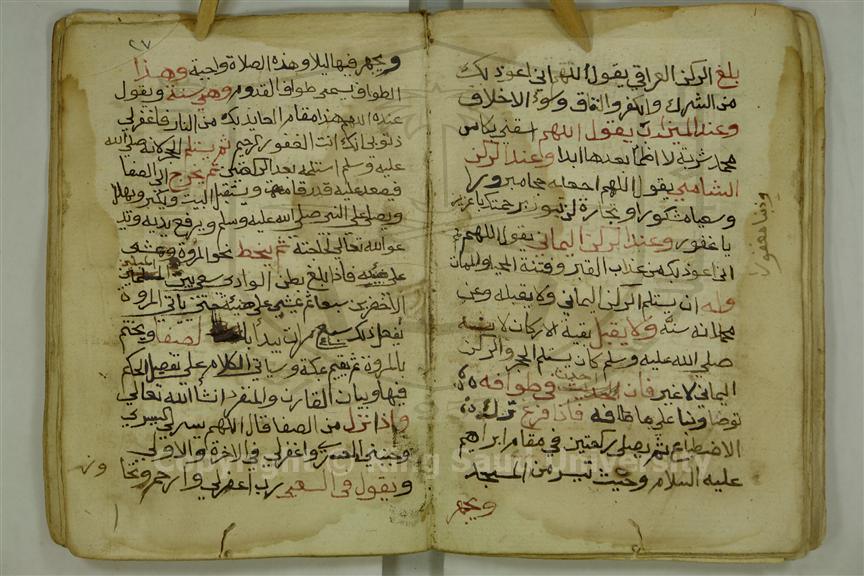 بلغ الركن العراقي يقول اللهم اني اعوذ بك
من الشرك والكفر والنفاق وسوء الاخلاق
وعند الميزاب يقول اللهم اسقني بكاس
محمد شربة لا اظمأ بعدها ابدا وعند الركن
الشامي يقول اللهم اجعله حجا مبرورا
وسعيا مشكورا وتجارة لن تبور برحمتك يا عزيز
يا غفور وعند الركن اليماني يقول اللهم
اني اعوذ بك من عذاب القبر وفتنة المحيا والممات
وله ان يستلم الركن اليماني ولا يقبله وعن
محمد انه سنة ولا يقبل بقية الاركان لانه
صلى الله عليه وسلم كان يستلم الحجر والركن
اليماني لا غير فان احدث في طوافه
توضا وبنا على ما طافه فاذا فرغ ترك
الاضطباع ثم يصلي ركعتين في مقام ابراهيم
عليه السلام وحيث تيسر من المسجد
ويجهر
وذنبا مغفورا
٢٧
ويجهر فيها ليلا وهذه الصلاة واجبة وهذا
الطواف يسمى طواف القدوم وهي سنة ويقول
عنده اللهم هذا مقام العائذ بك من النار فاغفر لي
ذنوبي انك انت الغفور الرحيم ثم يستلم الحجر لانه صلى الله
عليه وسلم استلمه بعد الركعتين ثم يخرج الى الصفا
فيصعد عليه قدر قامة ويستقبل البيت ويكبر ويهلل
ويصلي على النبي صلى الله عليه وسلم ويرفع يديه ويد
عو الله تعالى لحاجته ثم يحط نحو المروة ويمشي
على هينته فاذا بلغ بطن الوادي سعى بين الميلين
الاخضرين سعيا ثم يمشي على هينة حتى ياتي المروة
يفعل ذلك سبع مرات يبدأ بالصفا ويختم
بالمروة ثم يقيم بمكة وسياتي الكلام على تفصيل الحكم
فيها وبيان القارن والمفرد ان شا الله تعالى
واذا نزل من الصفا قال اللهم يسر لي اليسرى
وجنبني العسرى واغفر لي في الاخرة والاولى
ويقول في السعي رب اغفر لي وارحم وتجا
وز
Copyright © King Saud University